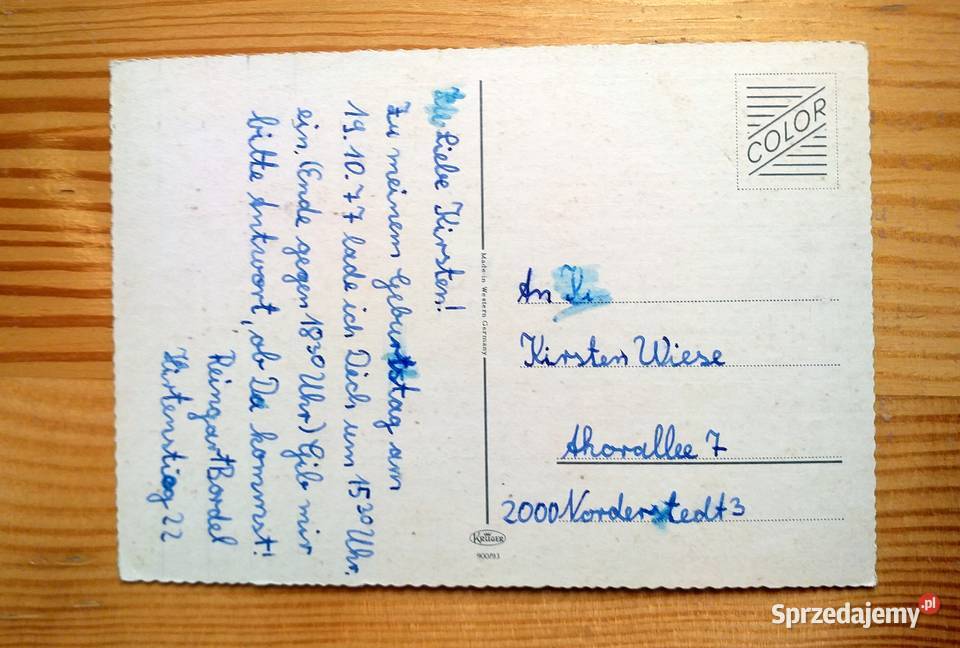 Liebe Kirsten!
Zu meinem Geburtstag am
19.10.77 lade ich Dich um 15³⁰ Uhr
ein. (Ende gegen 18³⁰ Uhr) Gib mir
bitte Antwort, ob Du kommst!
Reingart Bordel
Hirtenstieg 22
Made in Western Germany
KRÜGER
900/93
COLOR
An
Kirsten Wiese
Ahorallee 7
2000 Norderstedt 3
Sprzedajemy.pl